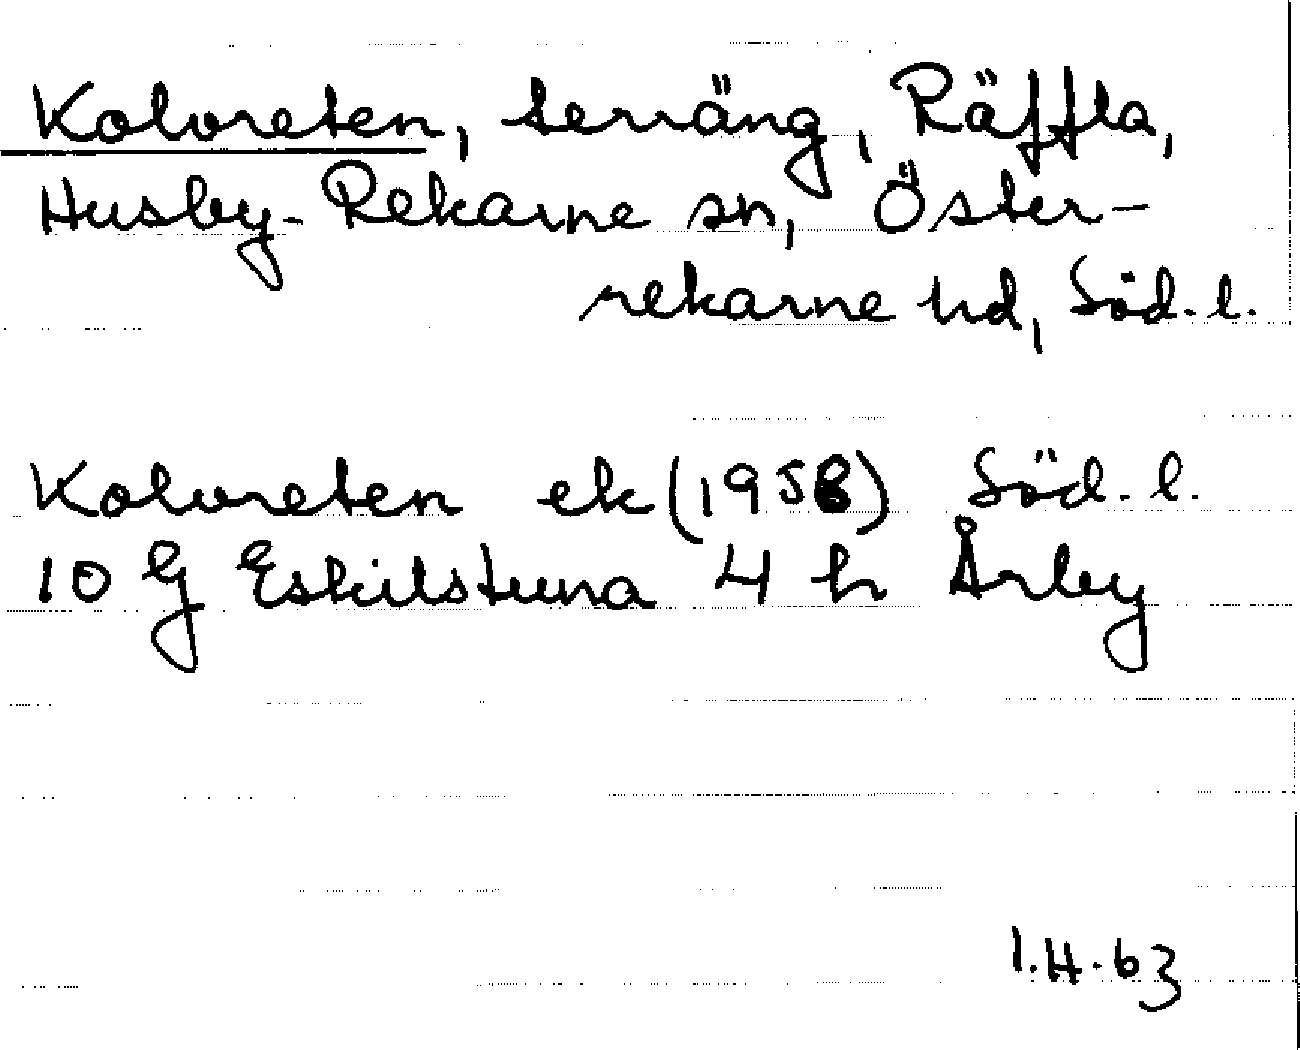 Kolvreten, terräng, Räffla,
Husby-Rekarne sn, Öster-
rekarne hd, Söd. l.
Kolvreten ek (1958) Söd. l.
10 G Eskilstuna 4 h Årby
I.H. 63